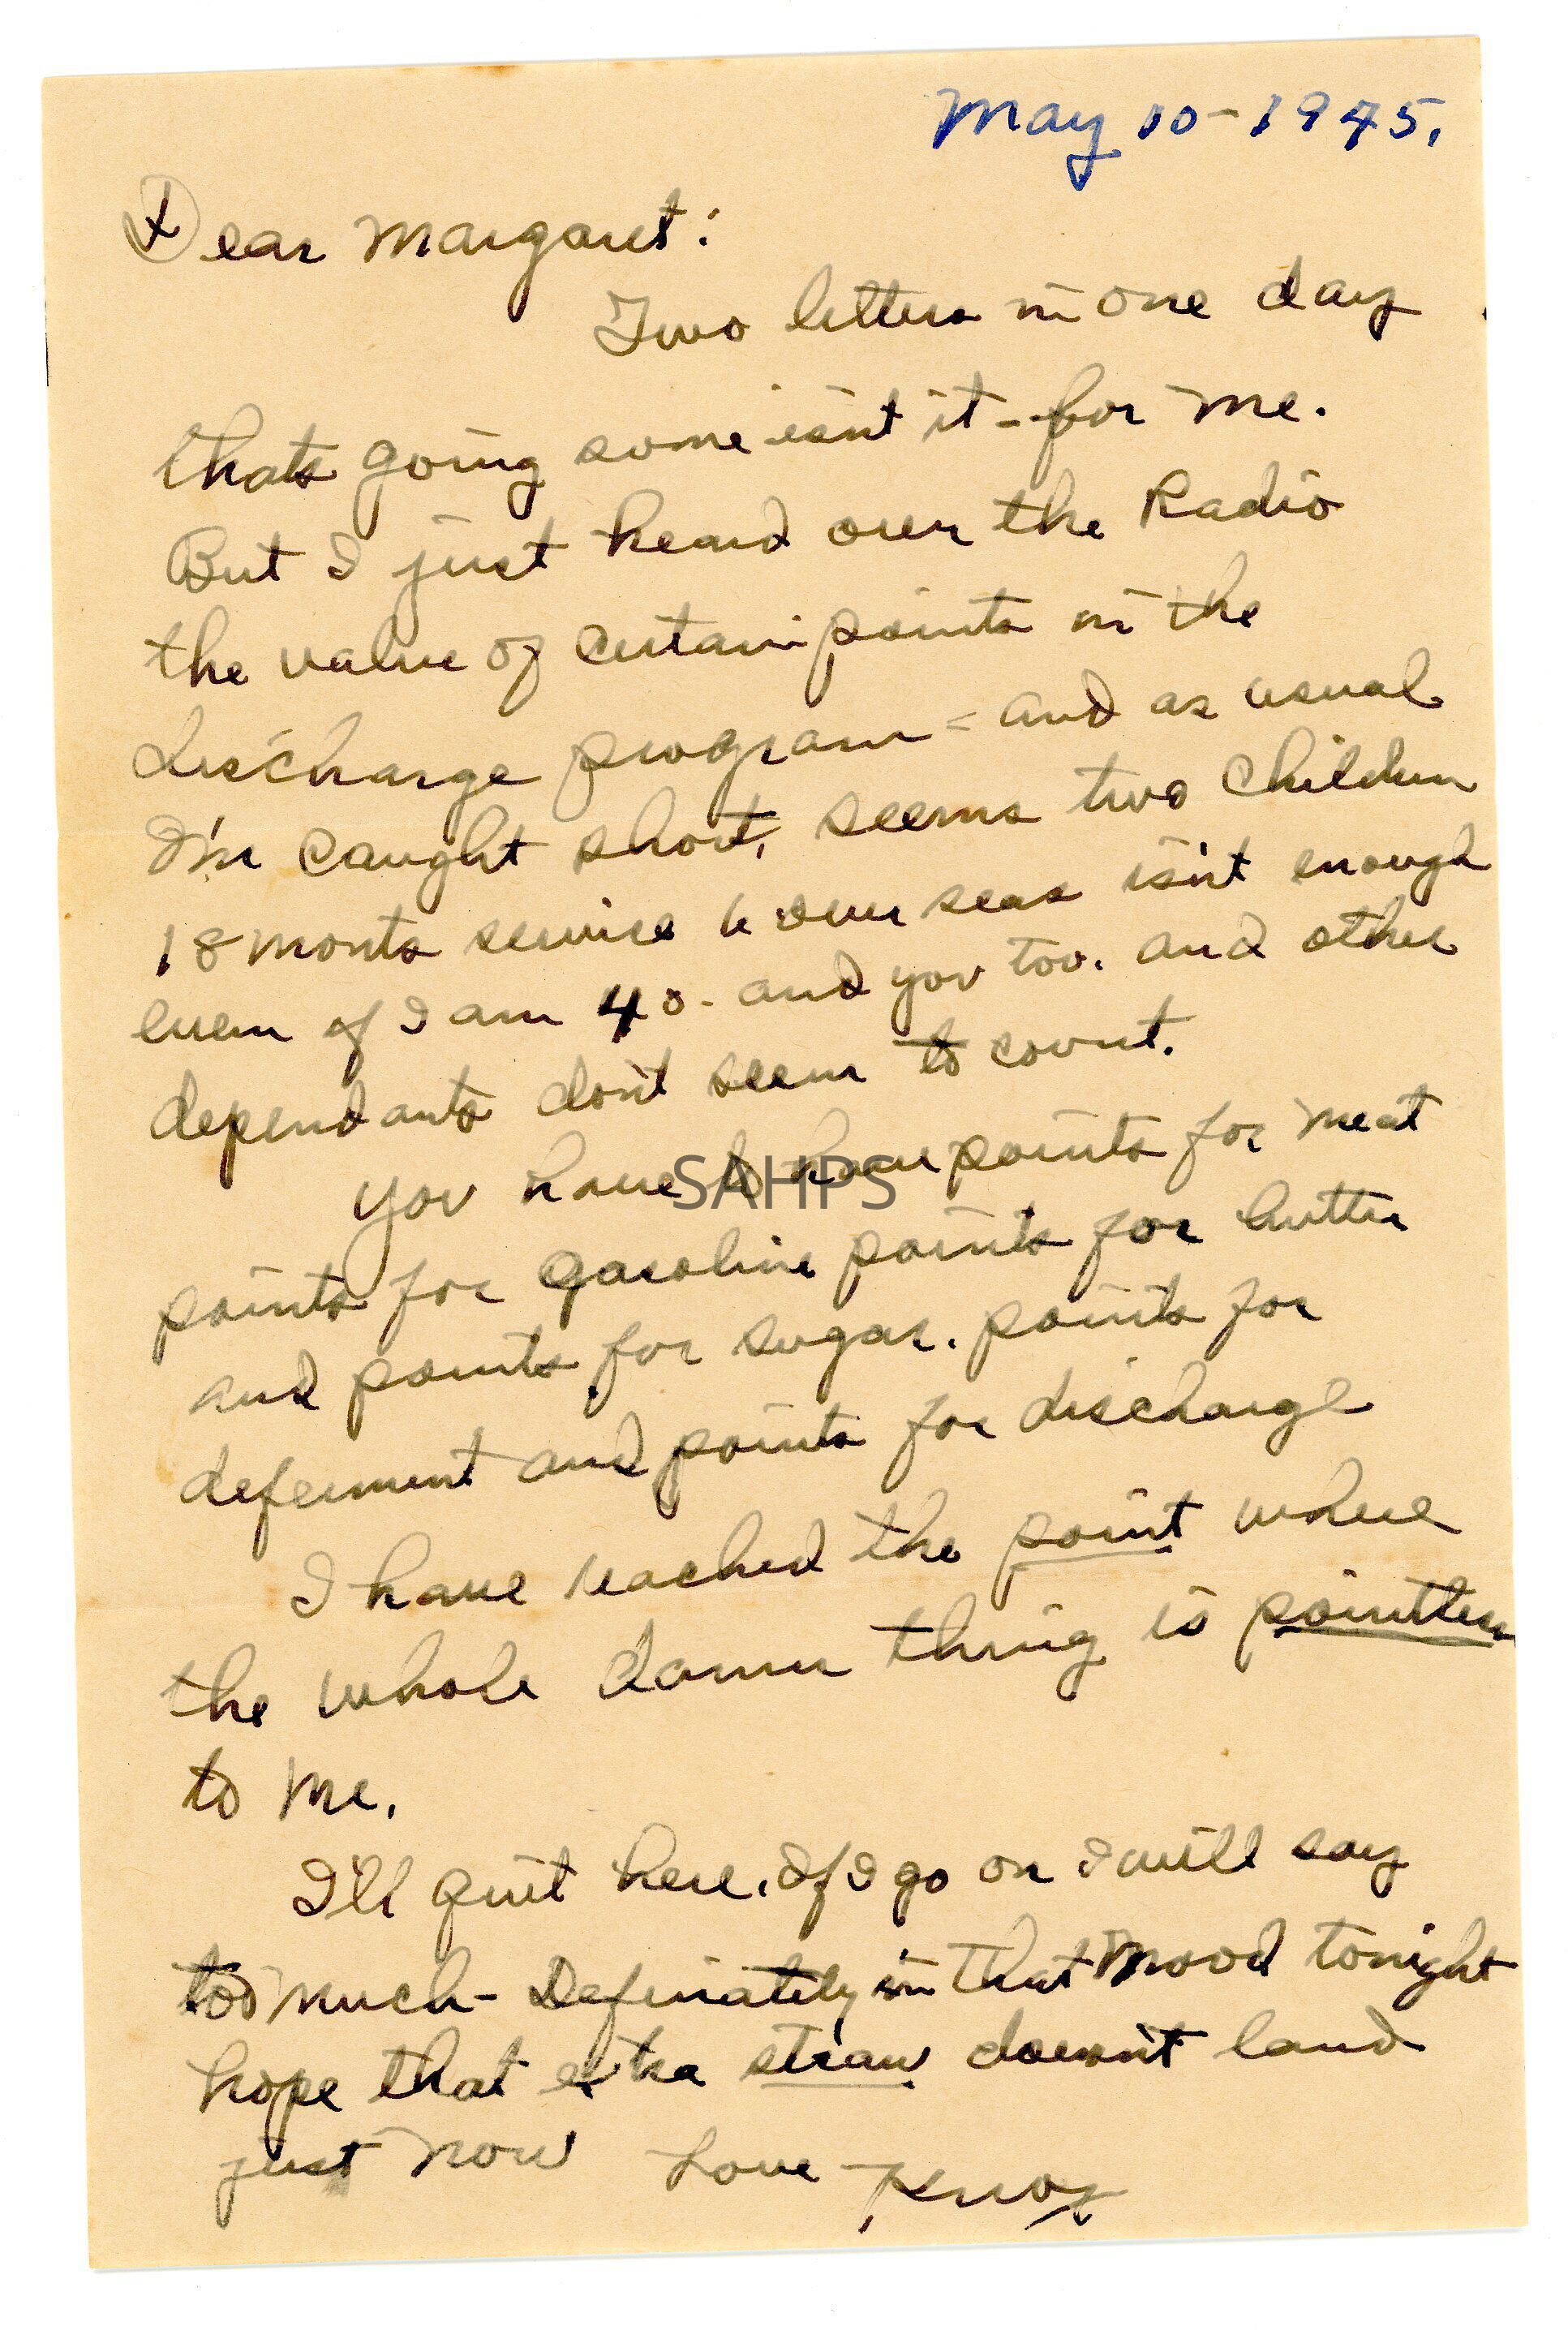 May 10-1945.
Dear Margaret:
Two letters in one day
thats going some isnt it - for me.
But I just heard over the Radio
the value of certain points in the
discharge program - and as usual
I'm caught short, seems two children
18 monts service 6 over seas isn't enough
even if I am 40 - and you too. and other
dependants don't seem to count.
You have to have points for meat
SAHPS
points for gasoline points for butter
and points for sugar. points for
deferment and points for discharge
I have reached the point where
the whole damn thing is pointless
to me.
I'll quit here. If I go on I will say
too much - Definately in that mood tonight
hope that extra straw doesn't land
just now Love